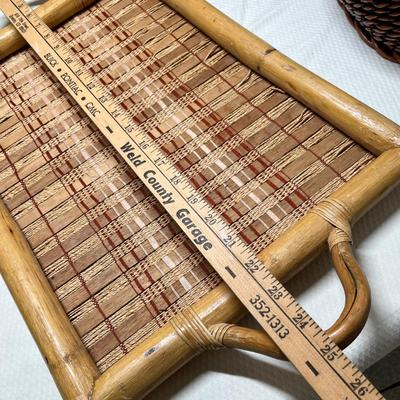 BUICK • PONTIAC • GMC
Weld County Garage
352-1313
7 8 9 10 11 12 13 14 15 16 17 18 19 20 21 22 23 24 25 26